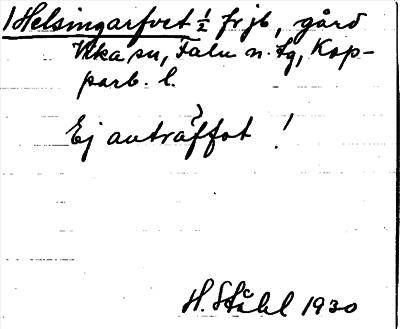 1 Helsingarfvet ½ frjb, gård
Vika sn, Falu n. tg, Kop-
parb. l.
Ej anträffat !
H. Ståhl 1930